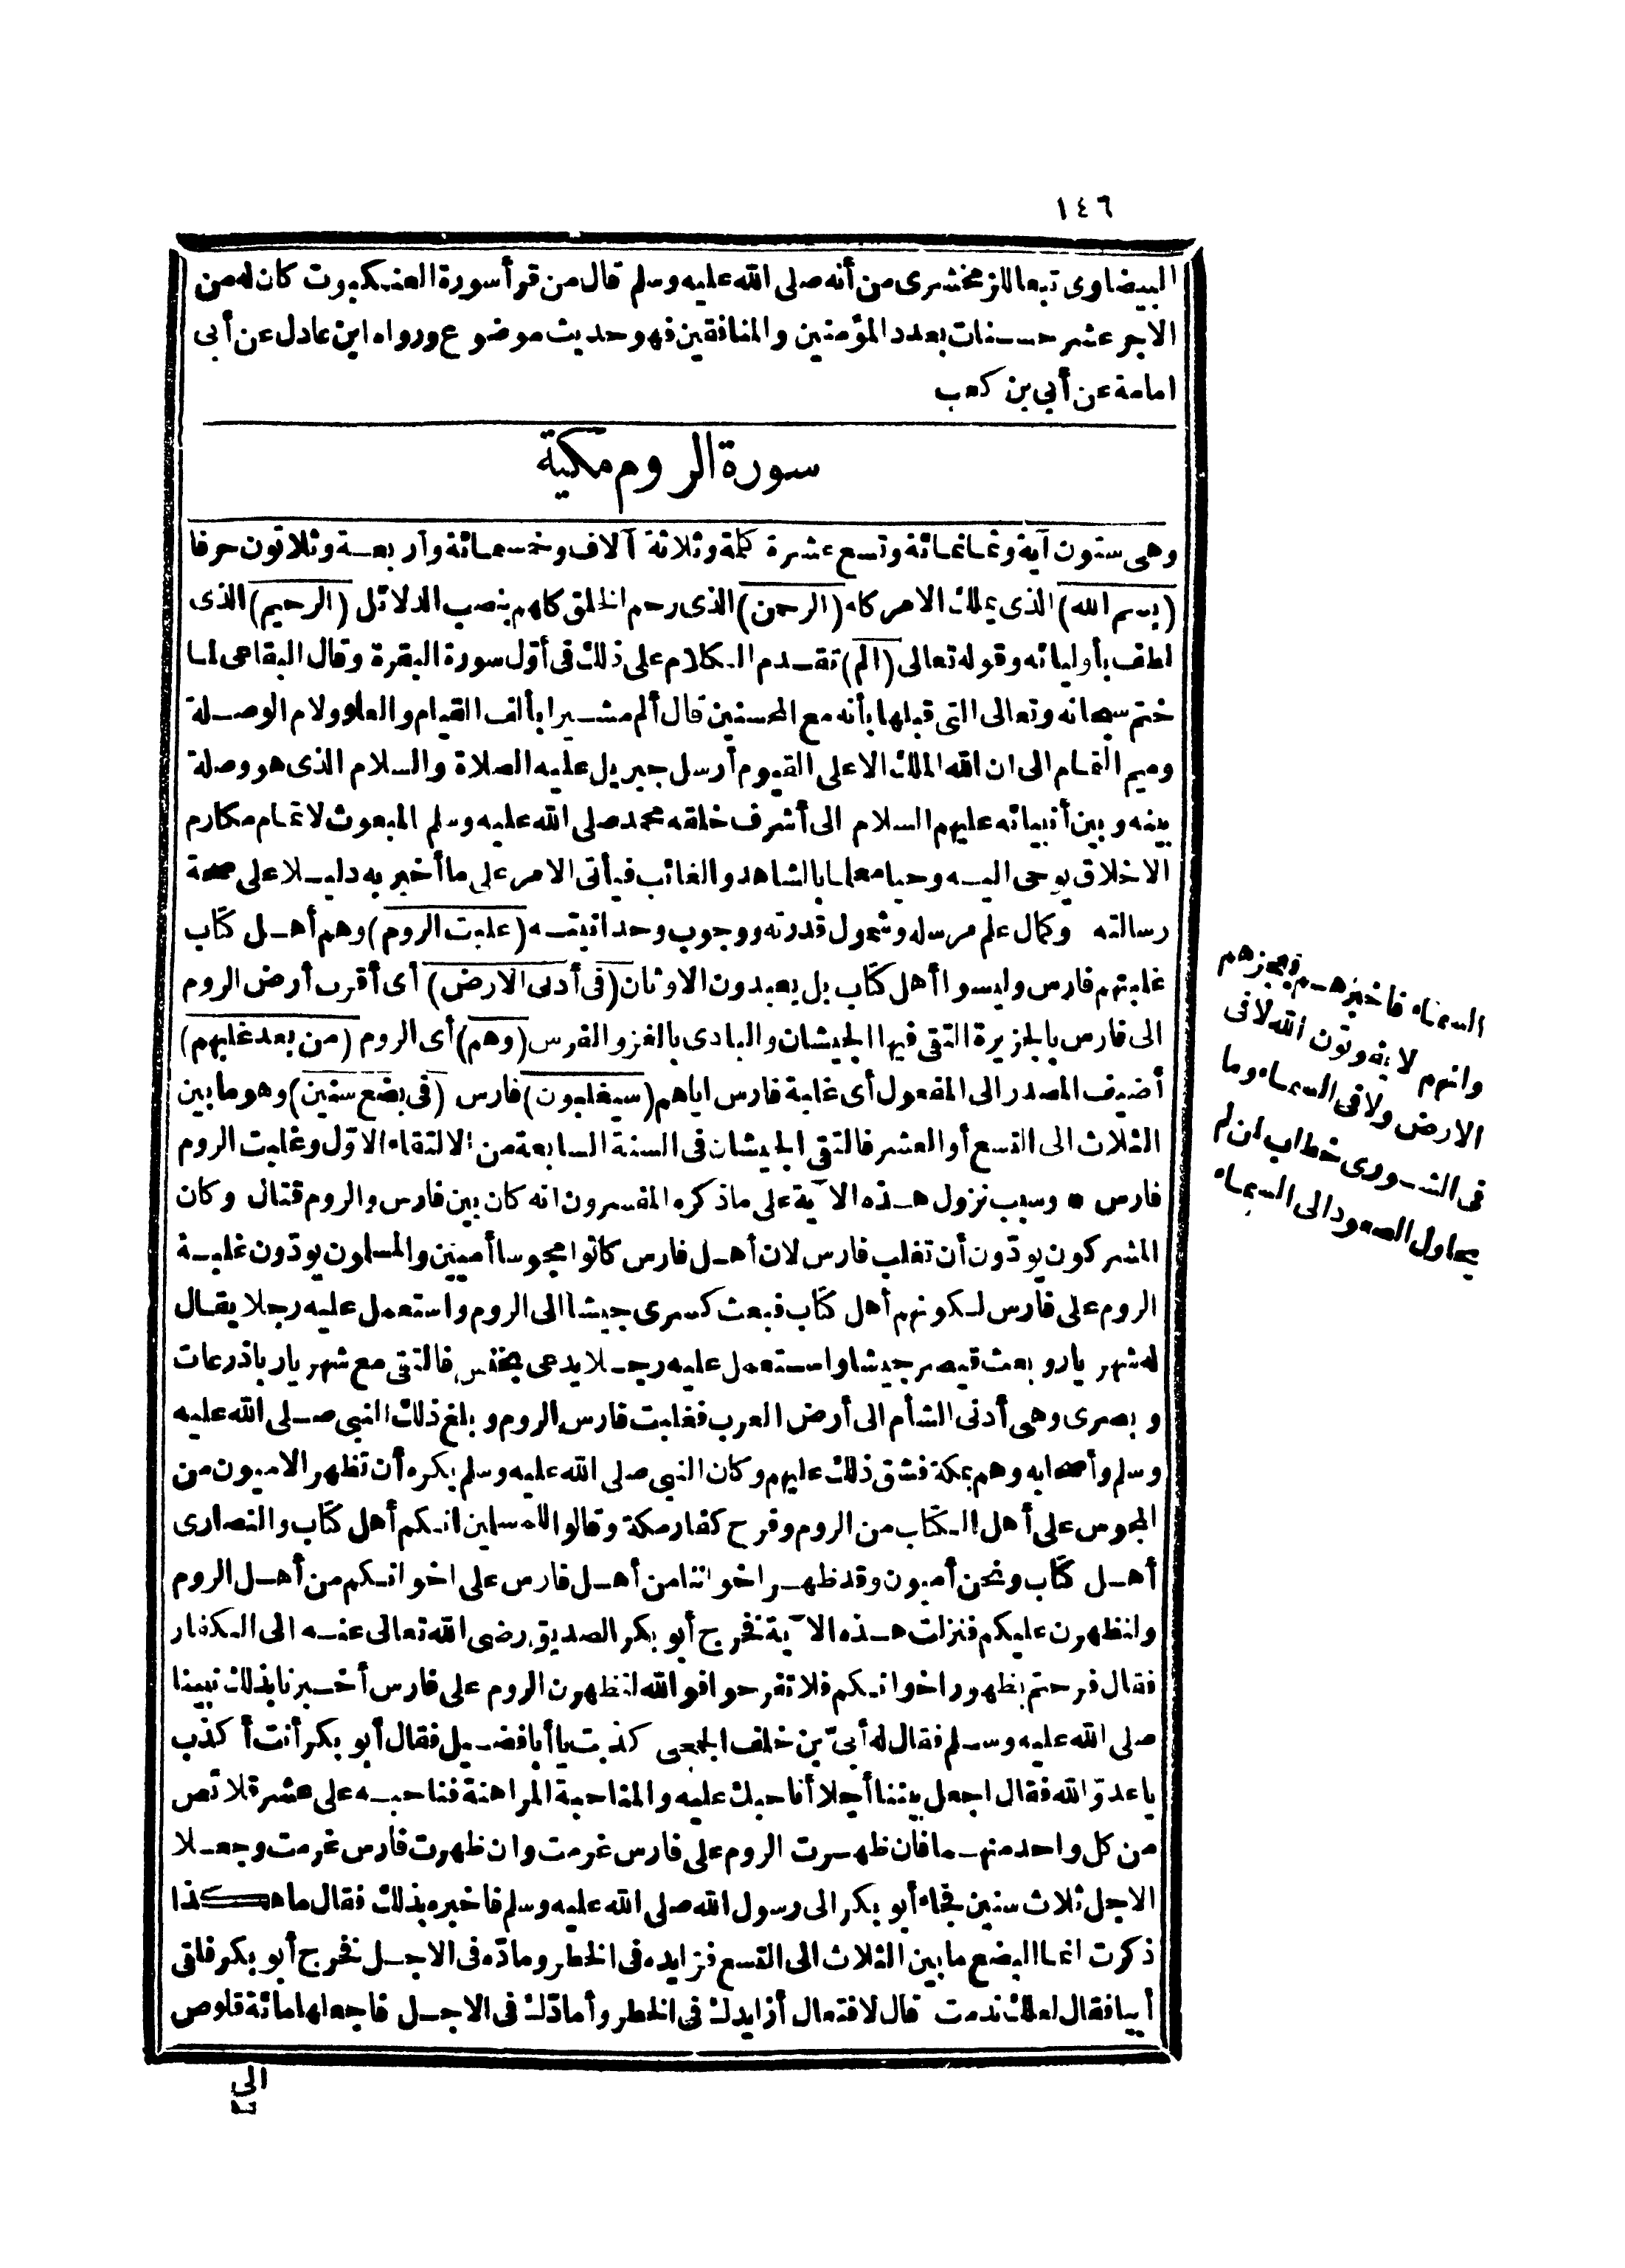 ١٤٦
البيضاوى تبعا للزمخشرى من أنه صلى الله عليه وسلم قال من قرأ سورة العنكبوت كان له من
الاجر عشر حسنات بعدد المؤمنين والمنافقين فهو حديث موضوع ورواه ابن عادل عن أبى
امامة عن أبي بن كعب
سورة الروم مكية
وهى ستون آية وثمانمائة وتسع عشرة كلمة وثلاثة آلاف وخمسمائة وأربعة وثلاثون حرفا
(بسم الله) الذى يملك الامر كله (الرحمن) الذى رحم الخلق كلهم بنصب الدلائل (الرحيم) الذى
لطف بأوليائه وقوله تعالى (الم) تقدم الكلام على ذلك فى أوّل سورة البقرة وقال البقاعى لما
ختم سبحانه وتعالى التى قبلها بأنه مع المحسنين قال ألم مشيرا بألف القيام والعلو ولام الوصلة
وميم التمام الى ان الله الملك الاعلى القيوم أرسل جبريل عليه الصلاة والسلام الذى هو وصلة
بينه وبين أنبيائه عليهم السلام الى أشرف خلقه محمد صلى الله عليه وسلم المبعوث لاتمام مكارم
الاخلاق يوحى اليه وحيا معلما بالشاهد والغائب فيأتى الامر على ما أخبر به دليلا على صحة
رسالته وكمال علم مرسله وشمول قدرته ووجوب وحدانيته (غلبت الروم) وهم أهل كتاب
غلبتهم فارس وليسوا أهل كتاب بل يعبدون الاوثان (فى أدنى الارض) أى أقرب أرض الروم
الى فارس بالجزيرة التقى فيها الجيشان والبادى بالغزو الفرس (وهم) أى الروم (من بعد غلبهم)
أضيف المصدر الى المفعول أى غلبة فارس اياهم (سيغلبون) فارس (فى بضع سنين) وهو ما بين
الثلاث الى التسع أو العشر فالتقى الجيشان فى السنة السابعة من الالتقاء الاوّل وغلبت الروم
فارس * وسبب نزول هذه الآية على ما ذكره المفسرون انه كان بين فارس والروم قتال وكان
المشركون يودّون أن تغلب فارس لان أهل فارس كانوا مجوسا أميين والمسلون يودّون غلبة
الروم على فارس لكونهم أهل كتاب فبعث كسرى جيشا الى الروم واستعمل عليه رجلا يقال
له شهريار وبعث قيصر جيشا واستعمل عليه رجلا يدعى بخنس فالتقى مع شهريار باذرعات
وبصرى وهى أدنى الشأم الى أرض العرب فغلبت فارس الروم وبلغ ذلك النبى صلى الله عليه
وسلم وأصحابه وهم بمكة فشق ذلك عليهم وكان النبى صلى الله عليه وسلم يكره أن تظهر الاميون من
المجوس على أهل الكتاب من الروم وفرح كفار مكة وقالوا للمسلين انكم أهل كتاب والنصارى
أهل كتاب ونحن أميون وقد ظهر اخواننا من أهل فارس على اخوانكم من أهل الروم
ولنظهرن عليكم فنزلت هذه الآية فخرج أبو بكر الصديق رضى الله تعالى عنه الى الكفار
فقال فرحتم بظهور اخوانكم فلا تفرحوا فوالله لنظهرن الروم على فارس أخبرنا بذلك نبينا
صلى الله عليه وسلم فقال له أبىّ بن خلف الجمعى كذبت يا أبا فضيل فقال أبو بكر أنت أكذب
يا عدوّ الله فقال اجعل بيننا أجلا أناحبك عليه والمناحبة المراهنة فناحبه على عشرة قلائص
من كل واحد منهما فان ظهرت الروم على فارس غرمت وان ظهرت فارس غرمت وجعلا
الاجل ثلاث سنين فجاء أبو بكر الى رسول الله صلى الله عليه وسلم فاخبره بذلك فقال ما هكذا
ذكرت انما البضع ما بين الثلاث الى التسع فزايده فى الخطر ومادّه فى الاجل فخرج أبو بكر فلقى
أبيا فقال لعلك ندمت قال لا فتعال أزايدك فى الخطر وأمادّك فى الاجل فاجعلها مائة قلوص
السماء فاخبرهم بعجزهم
وانهم لا يفوتون الله لا فى
الارض ولا فى السماء وما
فى الشورى خطاب لن لم
يحاول الصعود الى السماء
الى